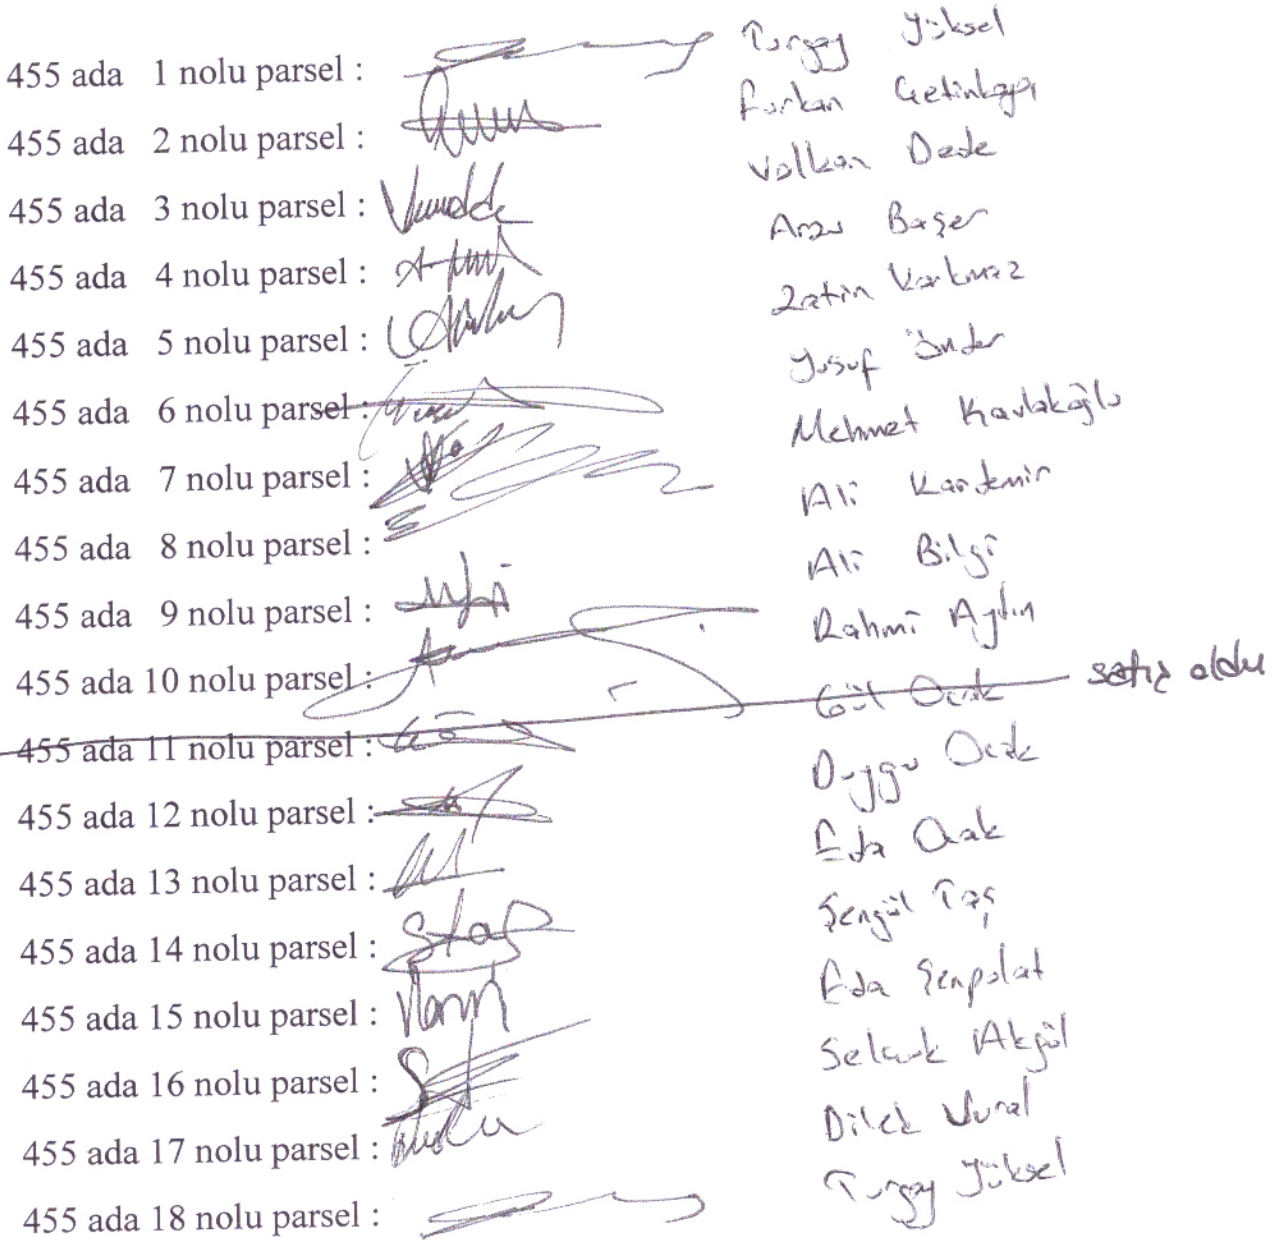 455 ada 1 nolu parsel : Turgay Yüksel
455 ada 2 nolu parsel : Furkan Çetinkaya
455 ada 3 nolu parsel : Volkan Dede
455 ada 4 nolu parsel : Arzu Başer
455 ada 5 nolu parsel : Zatin Korkmaz
455 ada 6 nolu parsel : Yusuf Önder
455 ada 7 nolu parsel : Mehmet Kavlakoğlu
455 ada 8 nolu parsel : Ali Kardemir
455 ada 9 nolu parsel : Ali Bilgi
455 ada 10 nolu parsel : Rahmi Aydın
455 ada 11 nolu parsel : Gül Ocak satış oldu
455 ada 12 nolu parsel : Duygu Ocak
455 ada 13 nolu parsel : Eda Ocak
455 ada 14 nolu parsel : Staş Şengül Taş
455 ada 15 nolu parsel : Eda Şenpolat
455 ada 16 nolu parsel : Selçuk Akgül
455 ada 17 nolu parsel : Dilek Vural
455 ada 18 nolu parsel : Turgay Yüksel